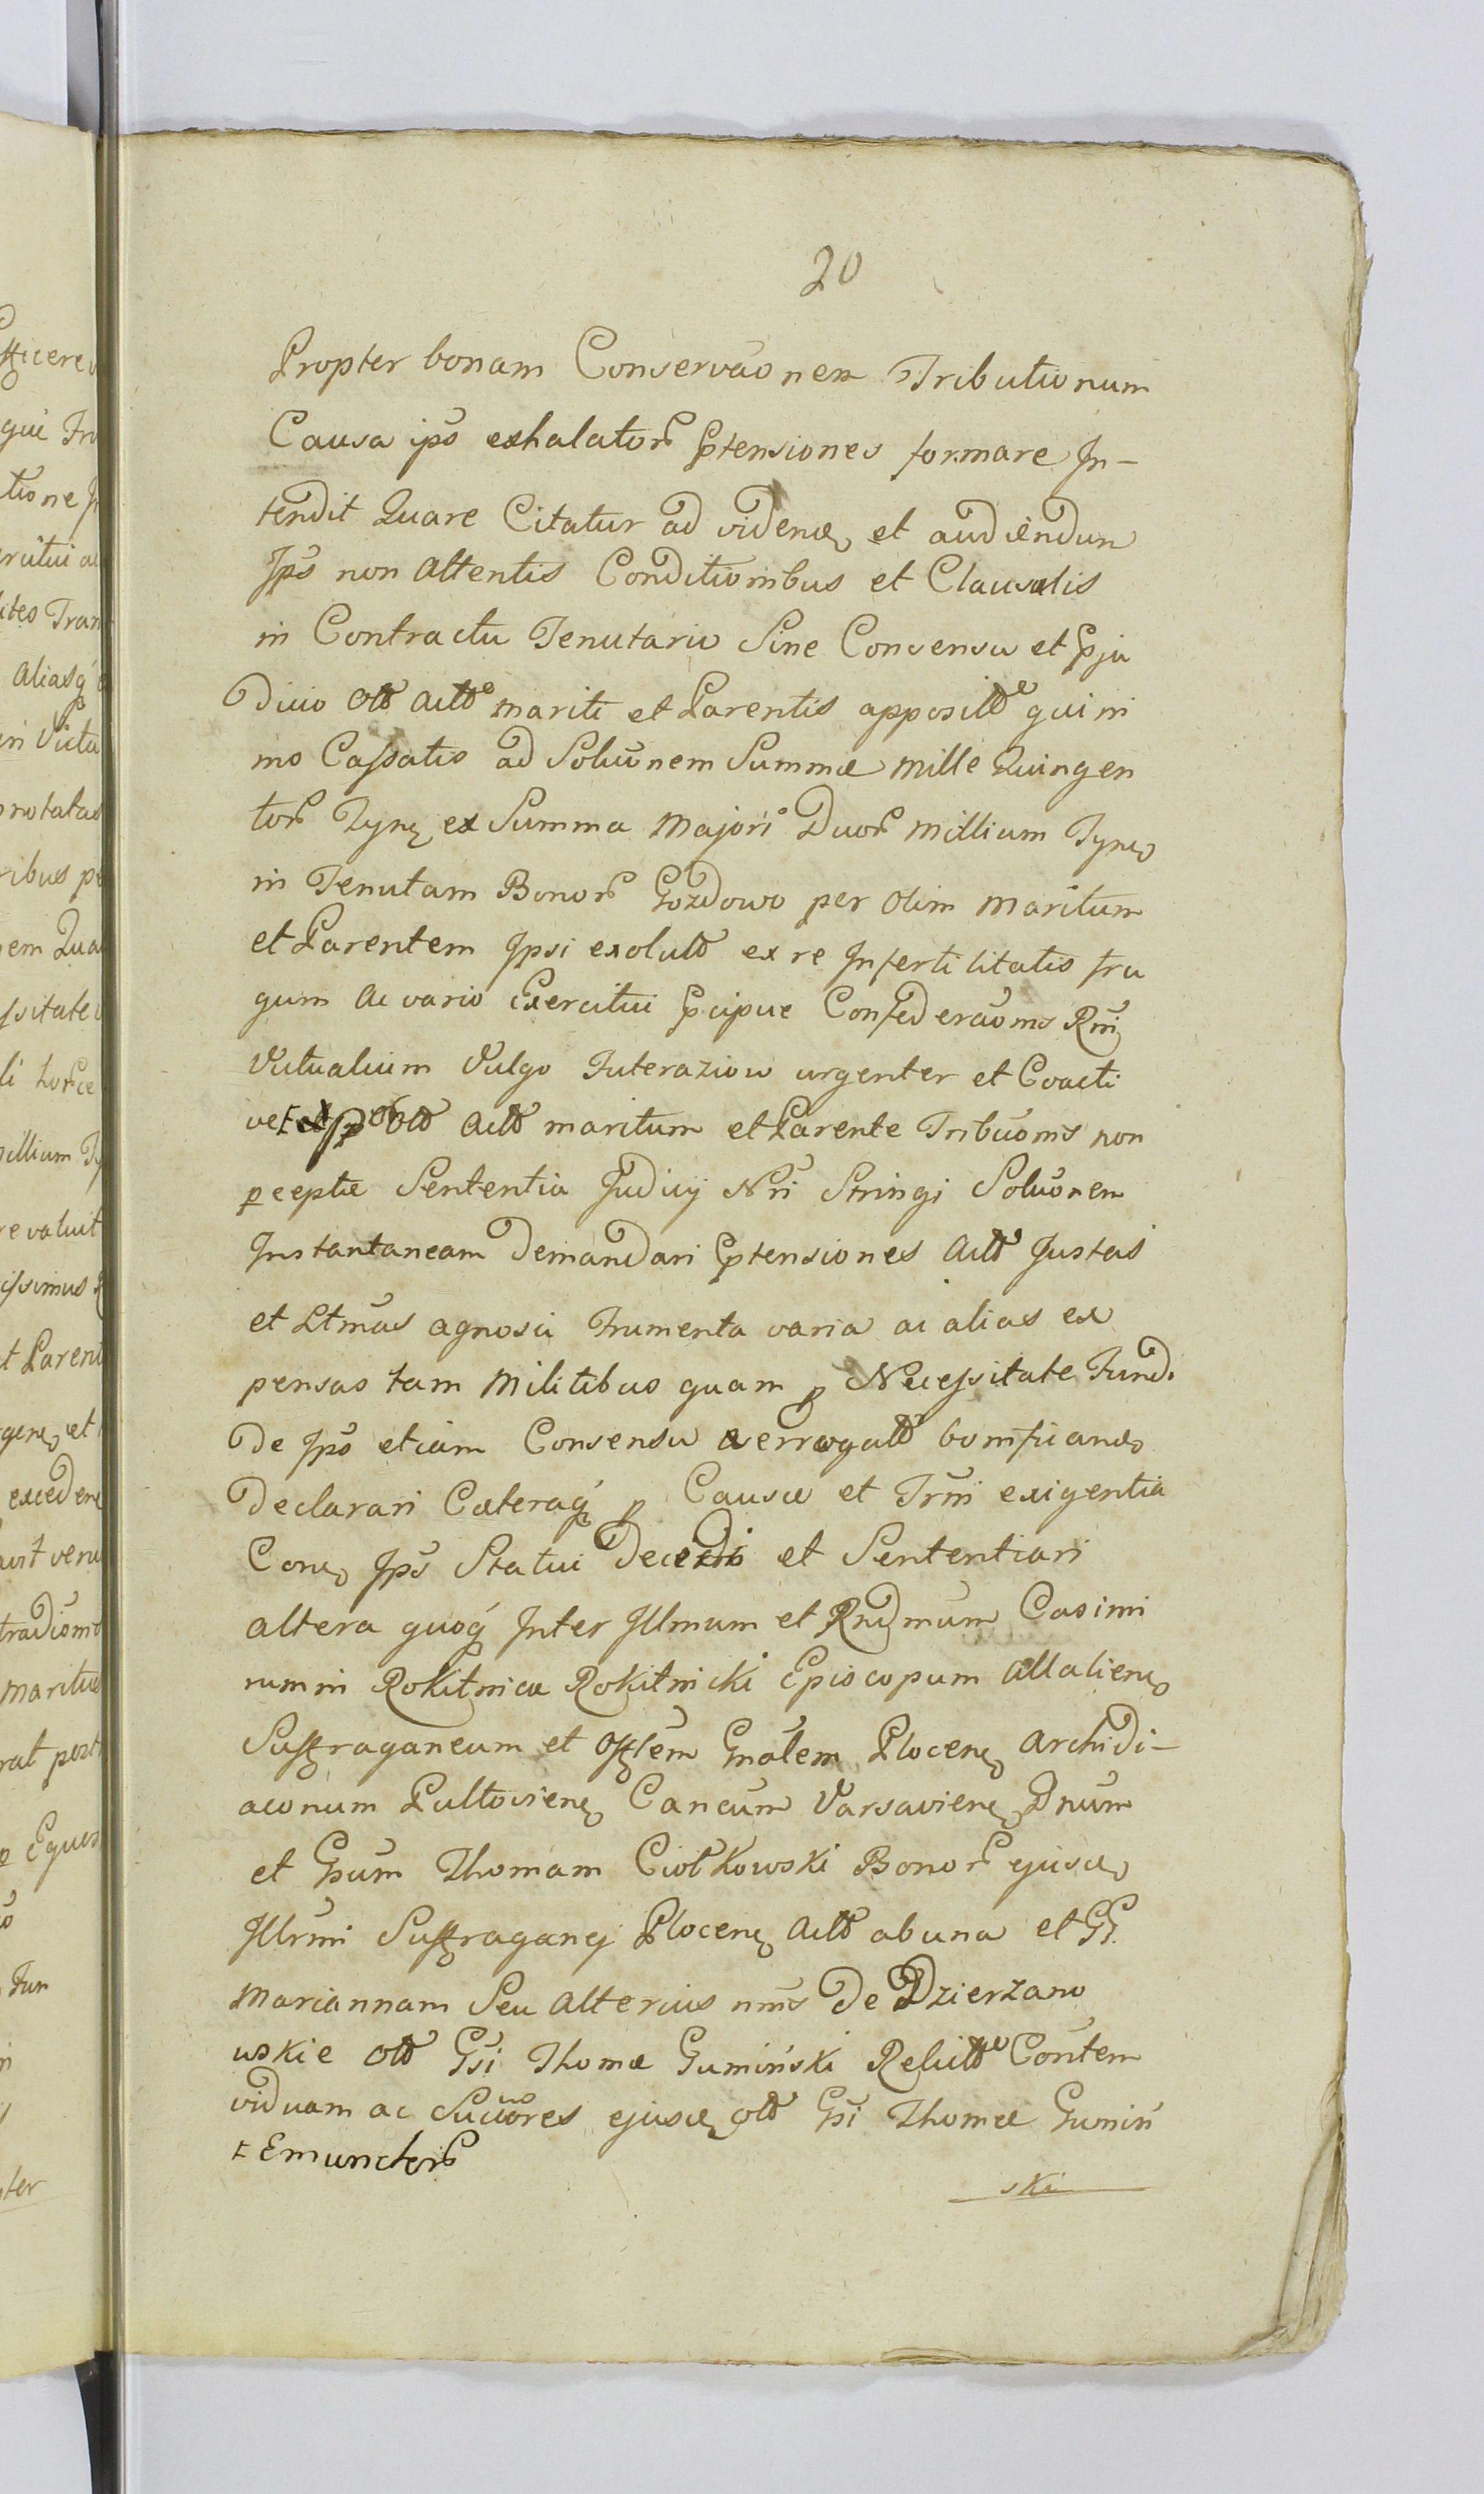 20
Propter bonam Conservãonem Tributionum
Causa ips̃o exhalator̃ p̃tensiones formare In-
tendit Quare Citatur ad videnđ et audiendum
Ips̃o non attentis Conditionibus et Clausulis
in Contractu Tenutario Sine Consensu et p̃ju
dicio Olł Actł mariti et Parentis appositł qui ni
mo Cassatis ad Solũonem Summæ mille Quingen
tor̃ Tynf ex Summa Majori Duor̃ millium Tynf
in Tenutam Bonor̃ Gozdowo per olim Maritum
et Parentem Ipsi exolutł ex re Infertilitatis fru
gum ac vario Exercitui p̃cipue Confederãonis
Victualium Vulgo Futeraziow urgenter et Coacti
ve Olł Actł maritum et Parente Tribũonis non
p̱ceptæ Sententia Judicij Nr̃i Stringi Solũonem
Instantaneam Demandari p̃tensiones Actł Justas
et Ltmãs agnosci Frumenta varia ac alias ex
pensas tam Militibus quam p̱ Necessitate Fund.
de Ips̃o etiam Consensu aerrogatł bonificanđ
Declarari Cæteraq́ p̱ Causæ et Trm̃i exigentia
Conđ Ips̃o Statui Decidi et Sententiari
altera quoq́ Inter Illmum et Rndmum Casimi
rum in Rokitnica Rokitnicki Episcopum Attalienẽ
Suffraganeum et Offlẽm Gnãlem Plocenẽ Archidi-
aconum Pultovienẽ Cancũm Varsavienẽ Dnũm
et Gsũm Thomam Ciołkowski Bonor̃ ejusđ
Illrm̃i Suffraganej Plocenẽ Actł ab una et GG.
Mariannam Seu alterius nm̃s de Dzierzano
wskie Olł Gsi Thomæ Gumiński Relictł Contem̃
viduam ac Succõres ejusđ olł Gsi Thomæ Gumiń
Emunctor̃
ski